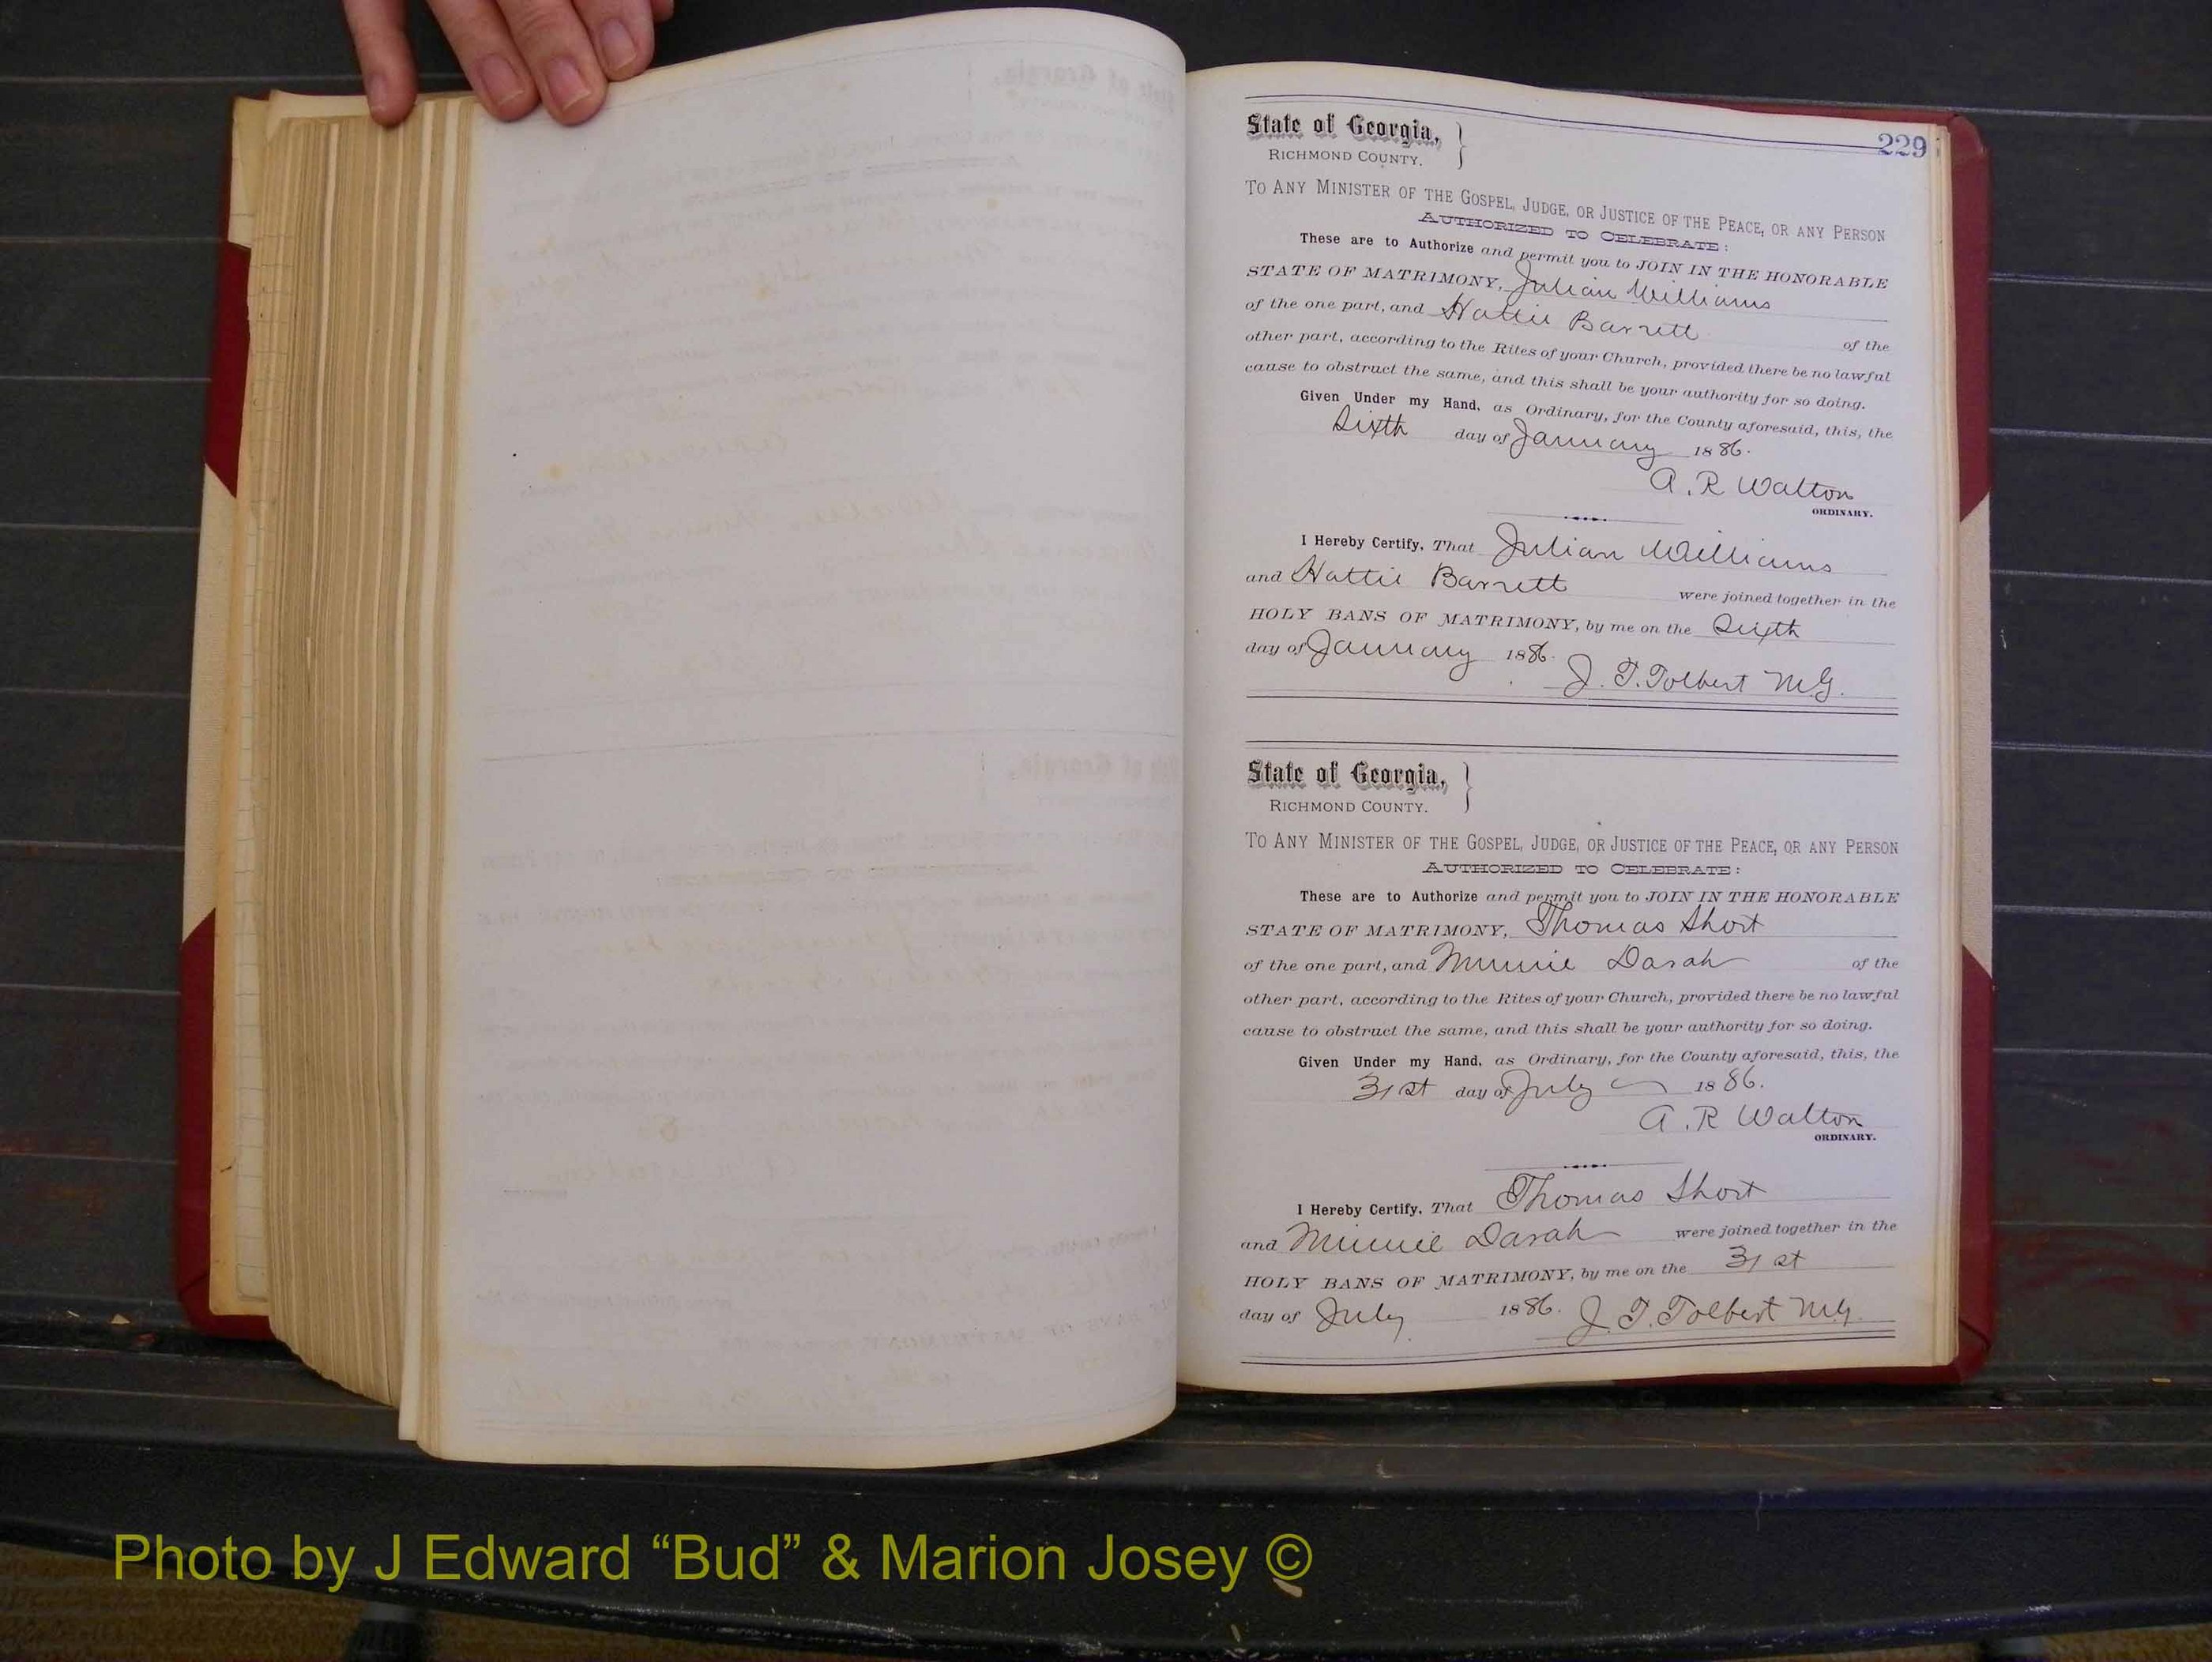 229
State of Georgia,
RICHMOND COUNTY.
TO ANY MINISTER OF THE GOSPEL, JUDGE, OR JUSTICE OF THE PEACE, OR ANY PERSON
AUTHORIZED TO CELEBRATE:
These are to Authorize and permit you to JOIN IN THE HONORABLE
STATE OF MATRIMONY, Julian Williams
of the one part, and Hattie Barrett of the
other part, according to the Rites of your Church, provided there be no lawful
cause to obstruct the same, and this shall be your authority for so doing.
Given Under my Hand, as Ordinary, for the County aforesaid, this, the
Sixth day of January 1886.
A. R Walton
ORDINARY.
I Hereby Certify, That Julian Williams
and Hattie Barrett were joined together in the
HOLY BANS OF MATRIMONY, by me on the Sixth
day of January 1886. J. T. Tolbert M.G.
State of Georgia,
RICHMOND COUNTY.
TO ANY MINISTER OF THE GOSPEL, JUDGE, OR JUSTICE OF THE PEACE, OR ANY PERSON
AUTHORIZED TO CELEBRATE:
These are to Authorize and permit you to JOIN IN THE HONORABLE
STATE OF MATRIMONY, Thomas Short
of the one part, and Minnie Darah of the
other part, according to the Rites of your Church, provided there be no lawful
cause to obstruct the same, and this shall be your authority for so doing.
Given Under my Hand, as Ordinary, for the County aforesaid, this, the
31st day of July 1886.
A. R Walton
ORDINARY.
I Hereby Certify, That Thomas Short
and Minnie Darah were joined together in the
HOLY BANS OF MATRIMONY, by me on the 31st
day of July 1886. J. T. Tolbert M.G.
Photo by J Edward “Bud” & Marion Josey ©